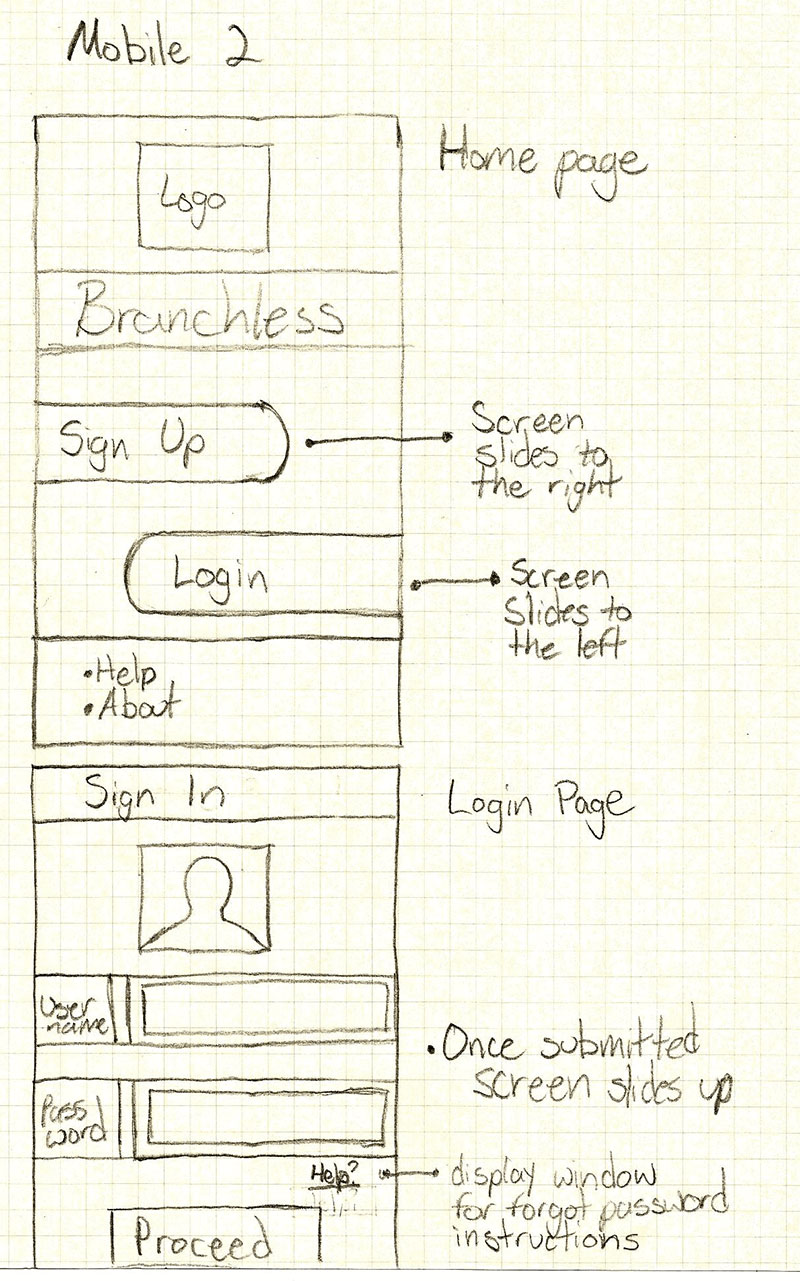 Mobile 2
Home page
Logo
Branchless
Sign Up
Screen
slides to
the right
Login
Screen
Slides to
the left
•Help
•About
Sign In
Login Page
User
name
•Once submitted
screen slides up
Pass
word
Help?
display window
for forgot password
instructions
Proceed